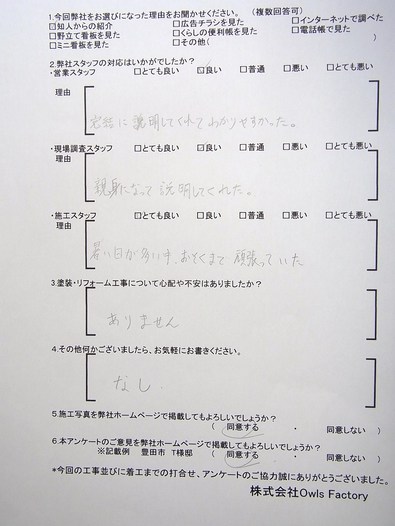 1.今回弊社をお選びになった理由をお聞かせください。（複数回答可）
☑知人からの紹介 □広告チラシを見た □インターネットで調べた
□野立て看板を見た □くらしの便利帳を見た □電話帳で見た
□ミニ看板を見た □その他( )
2.弊社スタッフの対応はいかがでしたか？
・営業スタッフ □とても良い ☑良い □普通 □悪い □とても悪い
理由
完結に説明してくれてわかりやすかった。
・現場調査スタッフ □とても良い ☑良い □普通 □悪い □とても悪い
理由
親身になって説明してくれた。
・施工スタッフ □とても良い ☑良い □普通 □悪い □とても悪い
理由
暑い日が多い中、おそくまで頑張っていた
3.塗装・リフォーム工事について心配や不安はありましたか？
ありません
4.その他何かございましたら、お気軽にお書きください。
なし.
5.施工写真を弊社ホームページで掲載してもよろしいでしょうか？
( 同意する ・ 同意しない )
6.本アンケートのご意見を弊社ホームページで掲載してもよろしいでしょうか？
※記載例 豊田市 T様邸 ( 同意する ・ 同意しない )
*今回の工事並びに着工までの打合せ、アンケートのご協力誠にありがとうございました。
株式会社Owls Factory